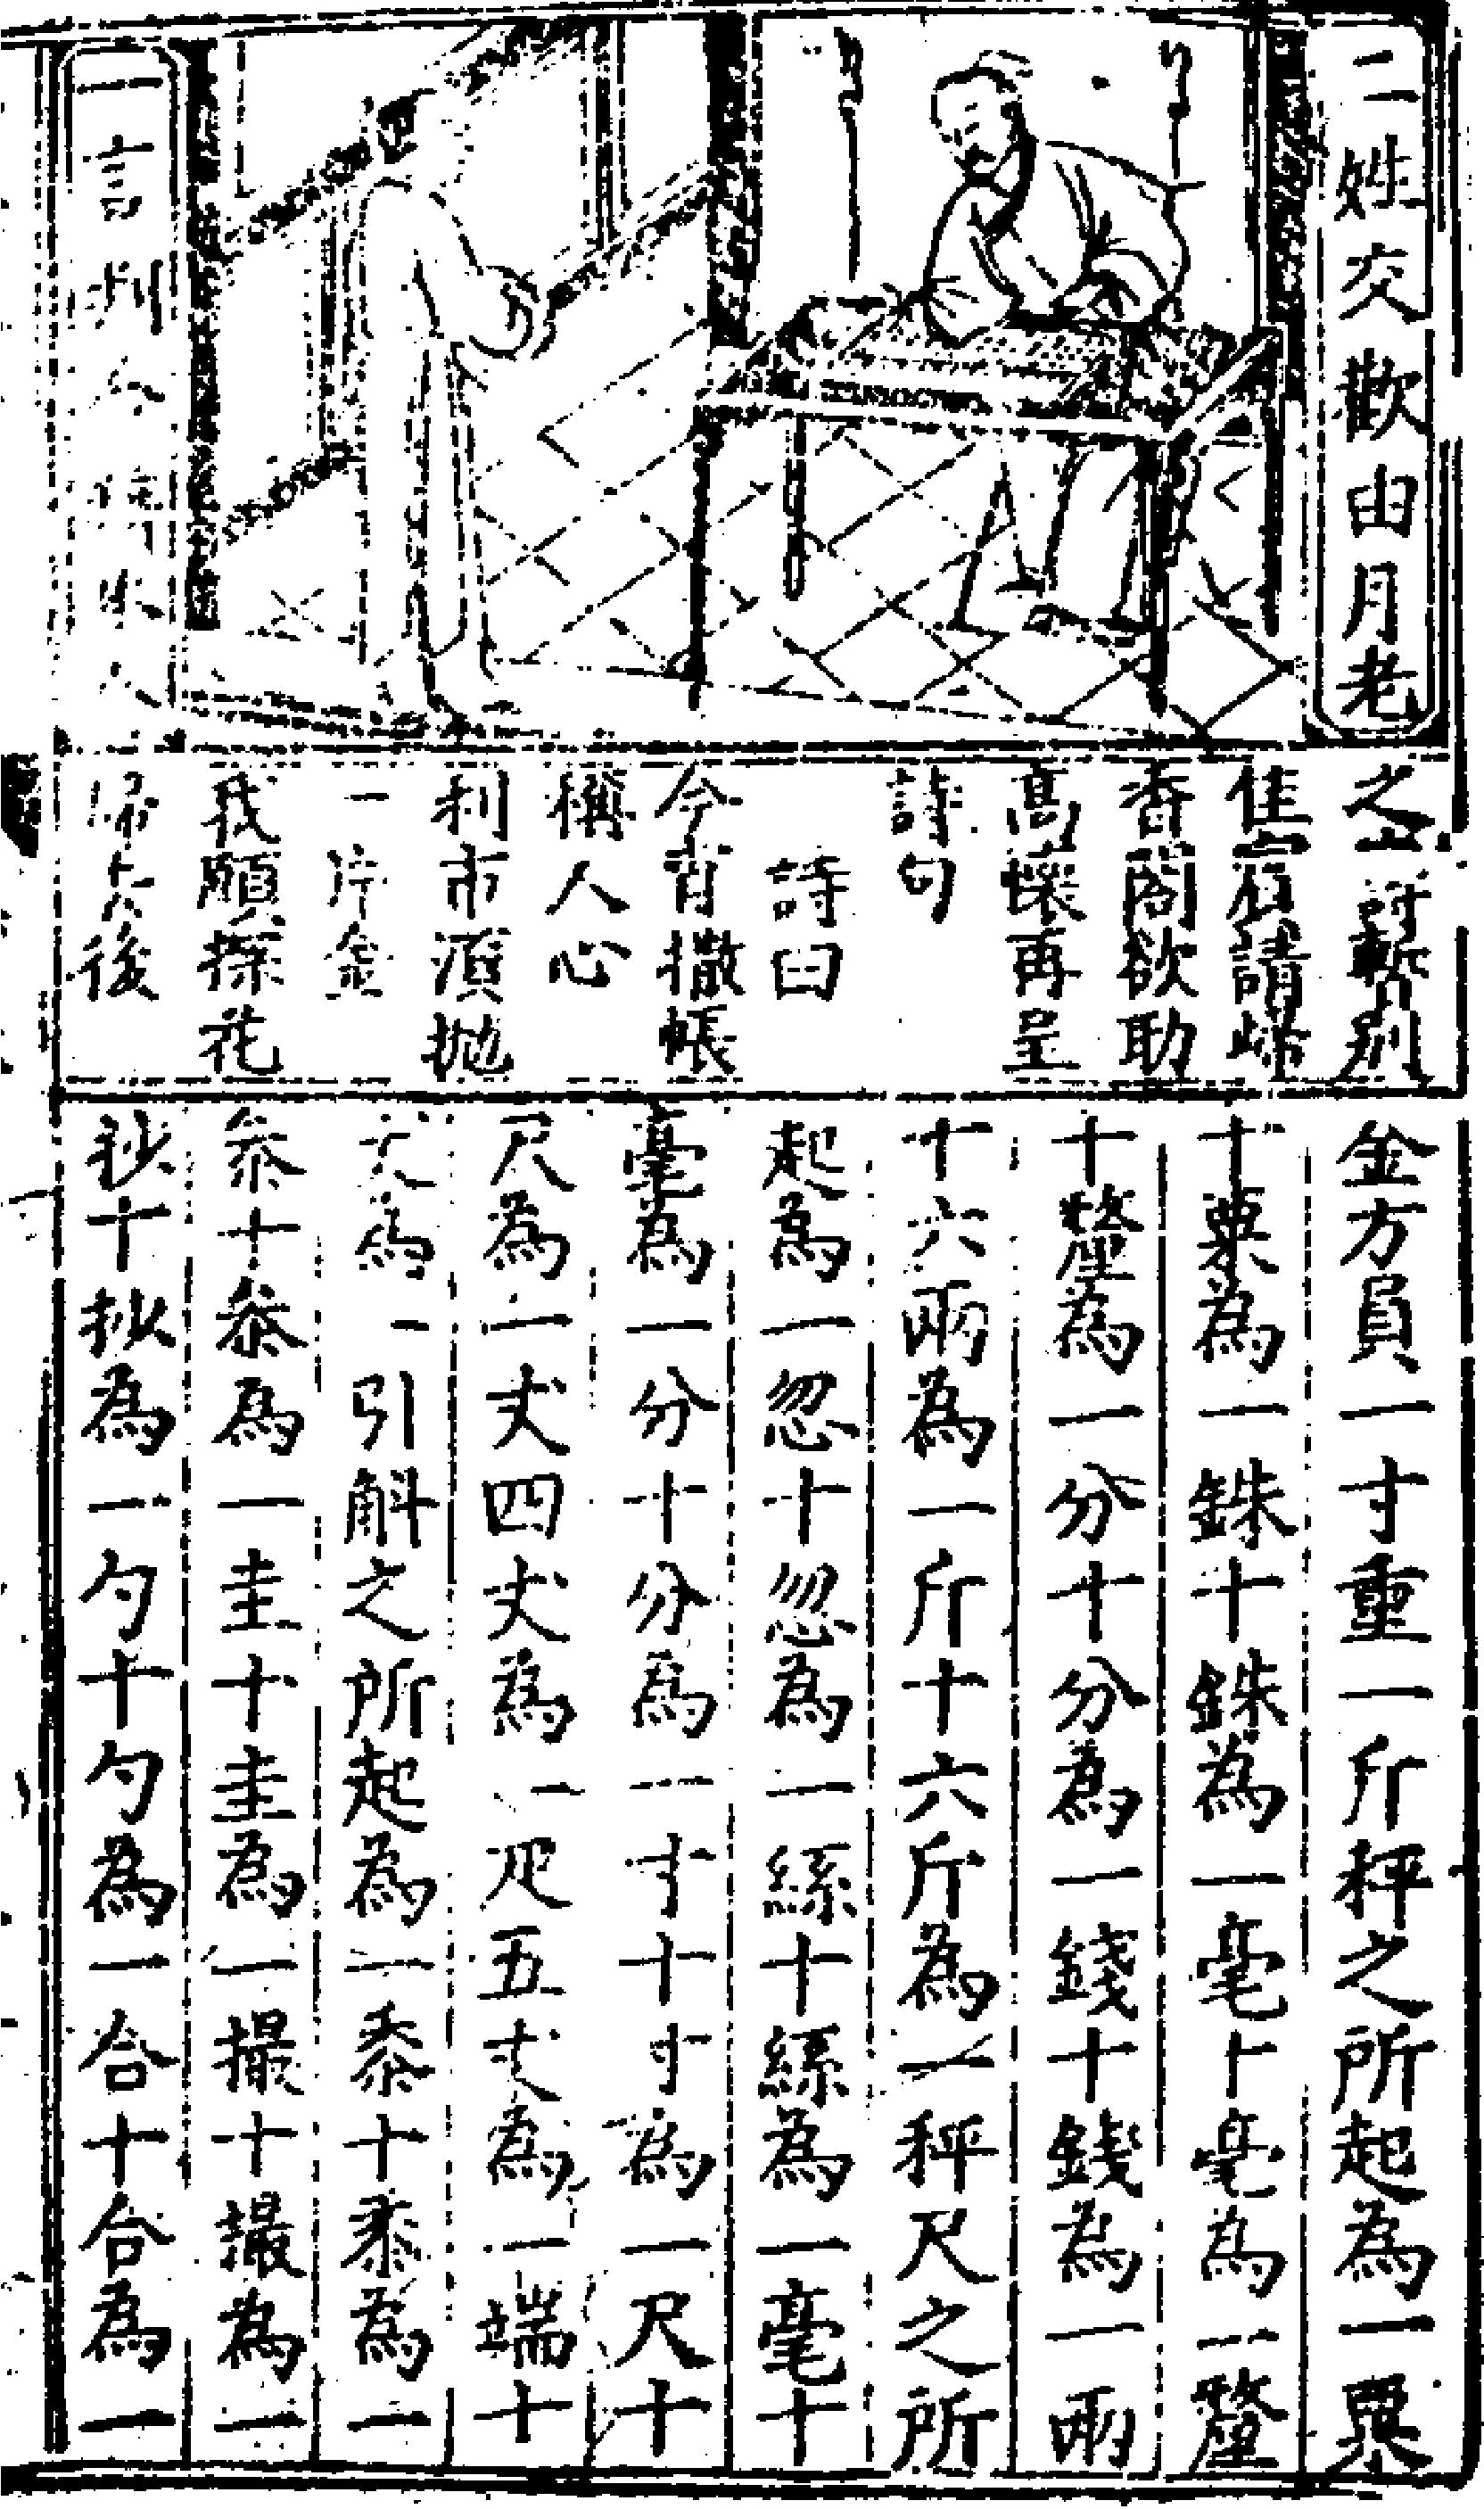 二姓交歡由月老
一言判合籍氷人
之時暫別
佳宿請歸
香閣欲助
高懷再呈
詩句
詩曰
今宵撒帳
稱人心
利市須拋
一片金
我願探花
歸去後
金方員一寸重一斤秤之所起為一粟
十粟為一銖十銖為一毫十毫為一釐
十釐為一分十分為一錢十錢為一兩
十六兩為一斤十六斤為一秤尺之所
起為一忽十忽為一絲十絲為一毫十
毫為一分十分為一寸十寸為一尺十
尺為一丈四丈為一疋五丈為一端十
丈為一引斛之所起為一黍十黍為一
叅十叅為一圭十圭為一撮十撮為一
抄十抄為一勺十勺為一合十合為一